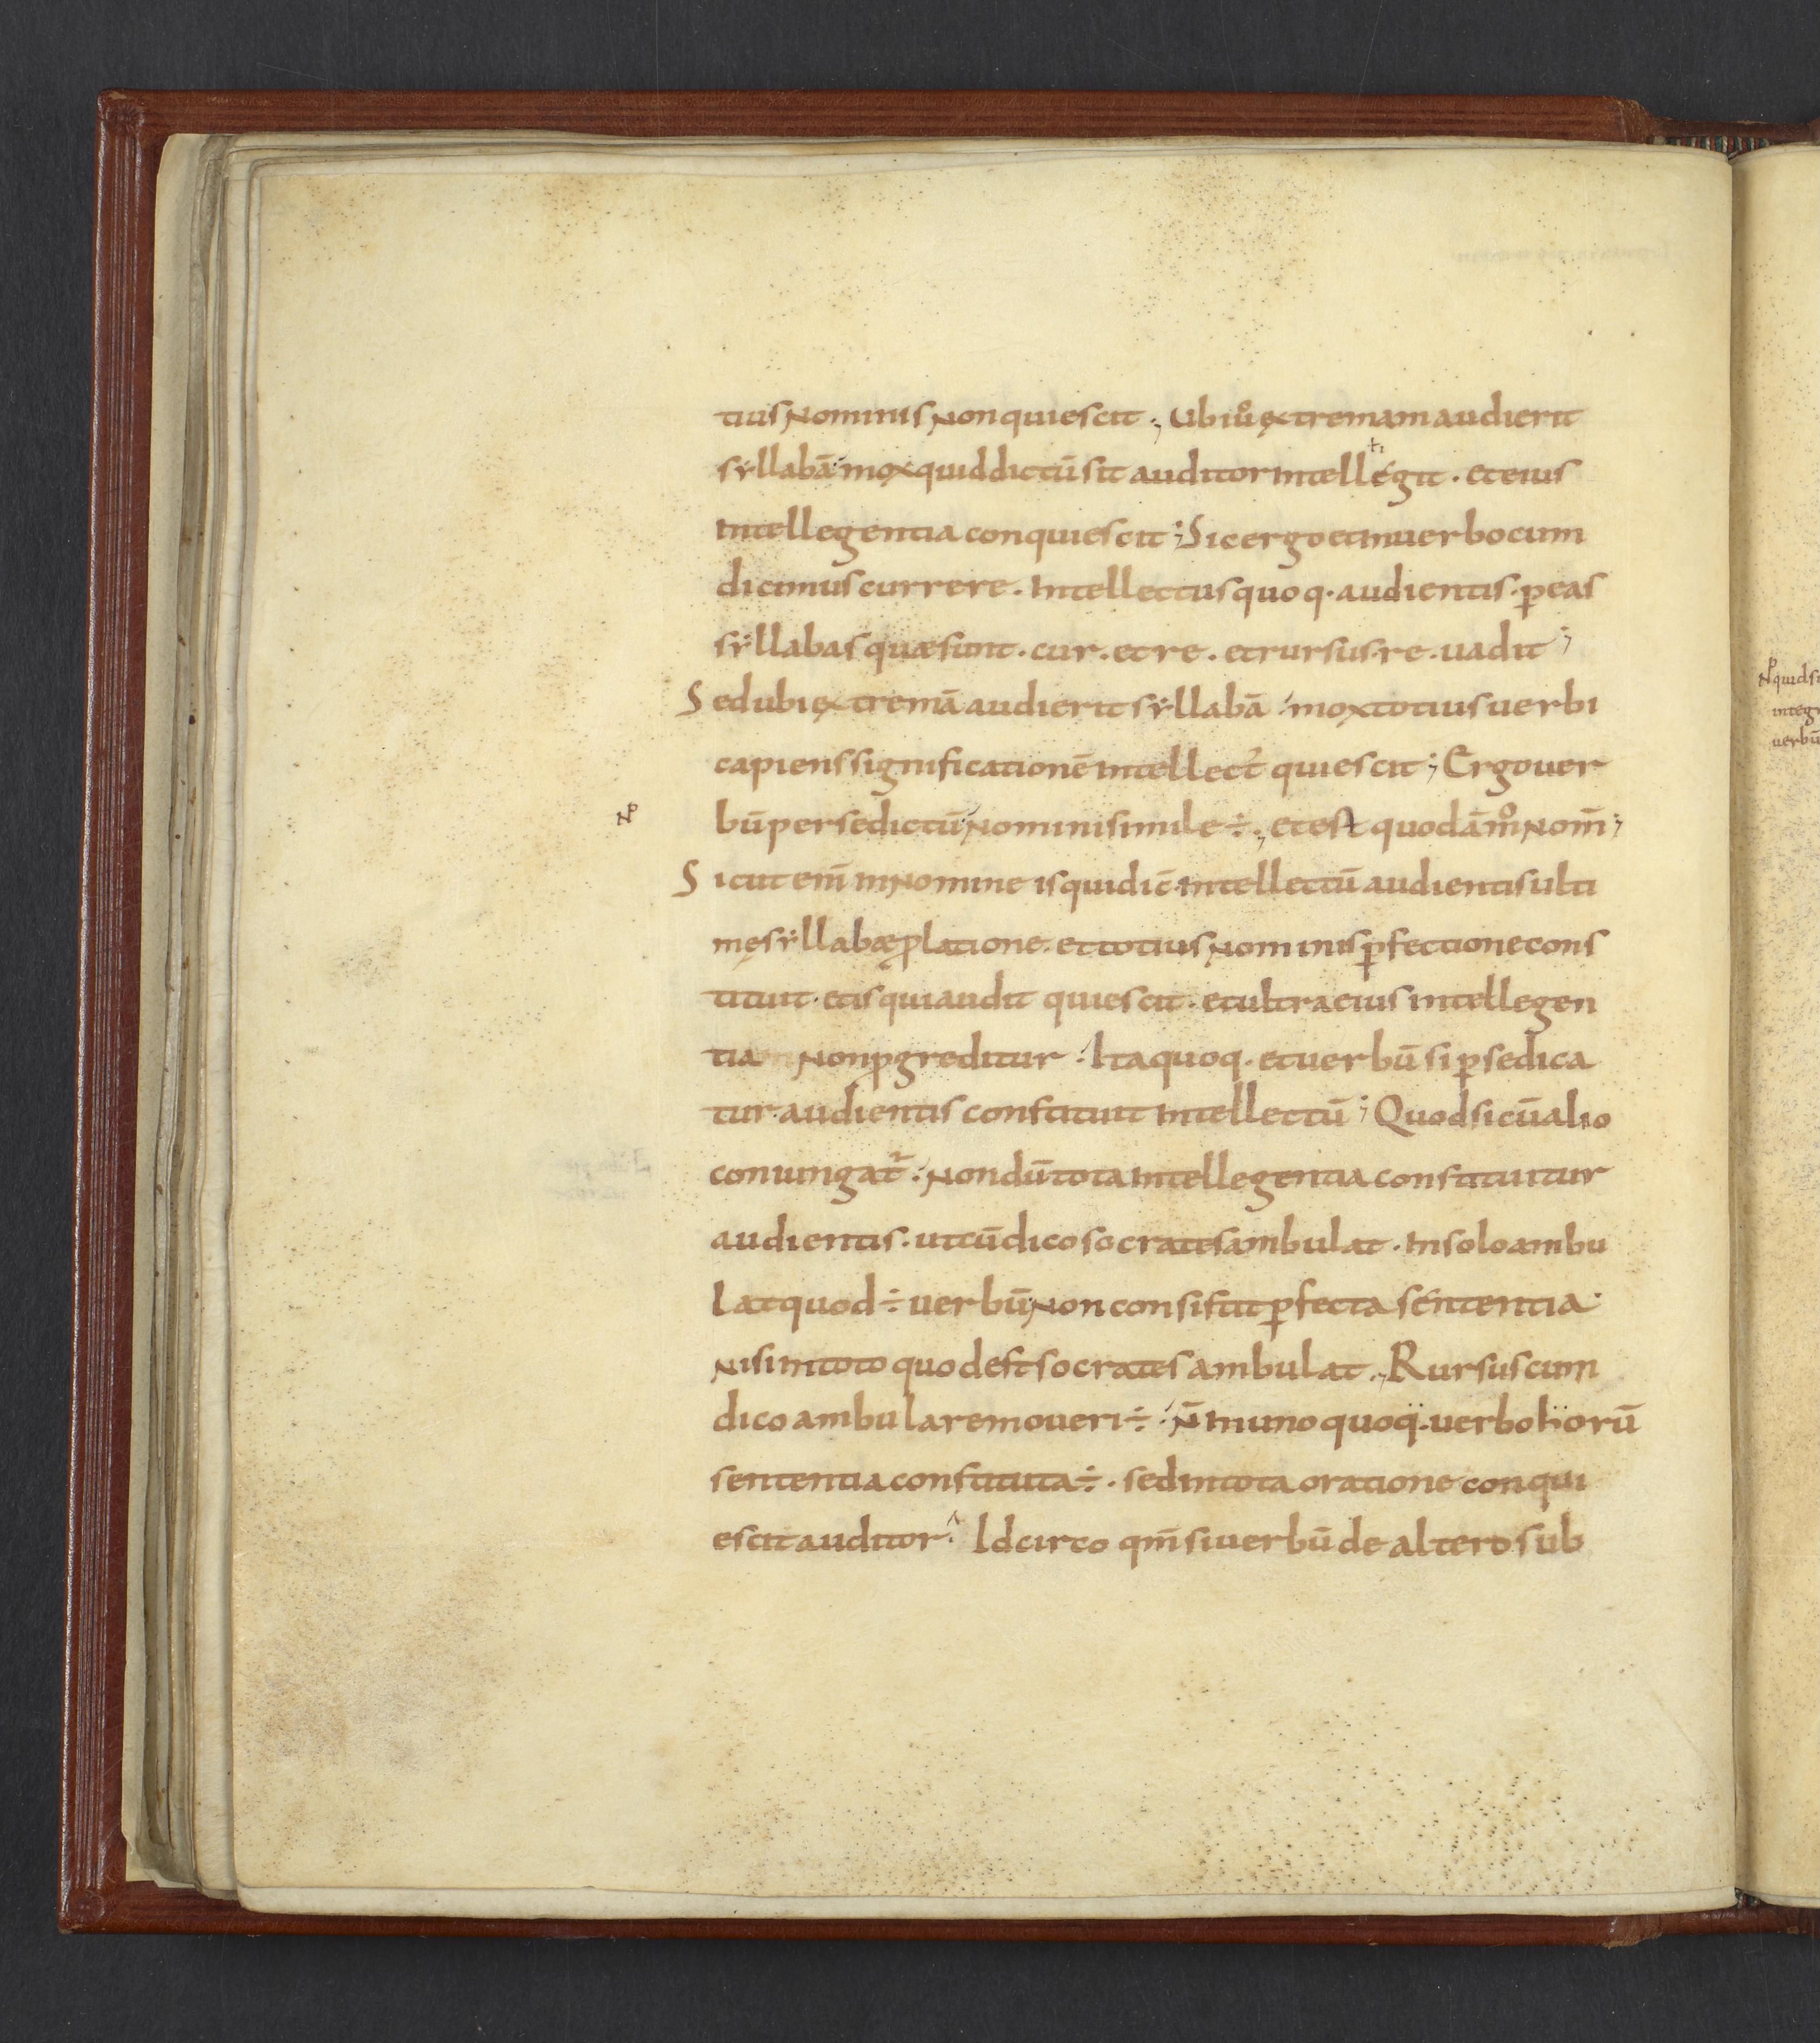 tius nominis non quiescit ; Ubi uͦ extremam audierit
syllabā mox quid dictū sit auditor intellegit . et eius
intellegentia conquiescit ; Sic ergo et in uerbo cum
dicimus currere . Intellectus quoq· audientis · ꝑ eas
syllabas quae sunt . cur . et re . et rursus · re . uadit ;
Sed ubi extremā audierit syllabā mox totius uerbi
capiens significationē intellect᾿ quiescit ; Ergo uer
bū per se dictū nomini simile ÷ ; et est quodā mͦ nom̄ ;
Sicut em̄ in nomine is qui dic̄ intellectū audientis ulti
mę syllabæ ꝓlatione . et totius nominis ꝑfectione cons
tituit · et is qui audit quiescit · et ultra eius intellegen
tia non ꝓgreditur . Ita quoq· et uerbū si ꝑ se dica
tur · audientis constituit intellectū ; Quod si cū alio
coniungat᾿ . nondū tota intellegentia constituitur
audientis . ut cū dico socrates ambulat . In solo ambu
lat quod ÷ uerbū non consistit ꝑfecta sententia ·
nisi in toto quod est socrates ambulat ; Rursus cum
dico ambulare moueri ÷ . n̄ in uno quoq· uerbo horū
sententia constituta ÷ . sed in tota oratione conqui
escit auditor . Idcirco qm̄ si uerbū de altero sub
quid si
integr
uerbū